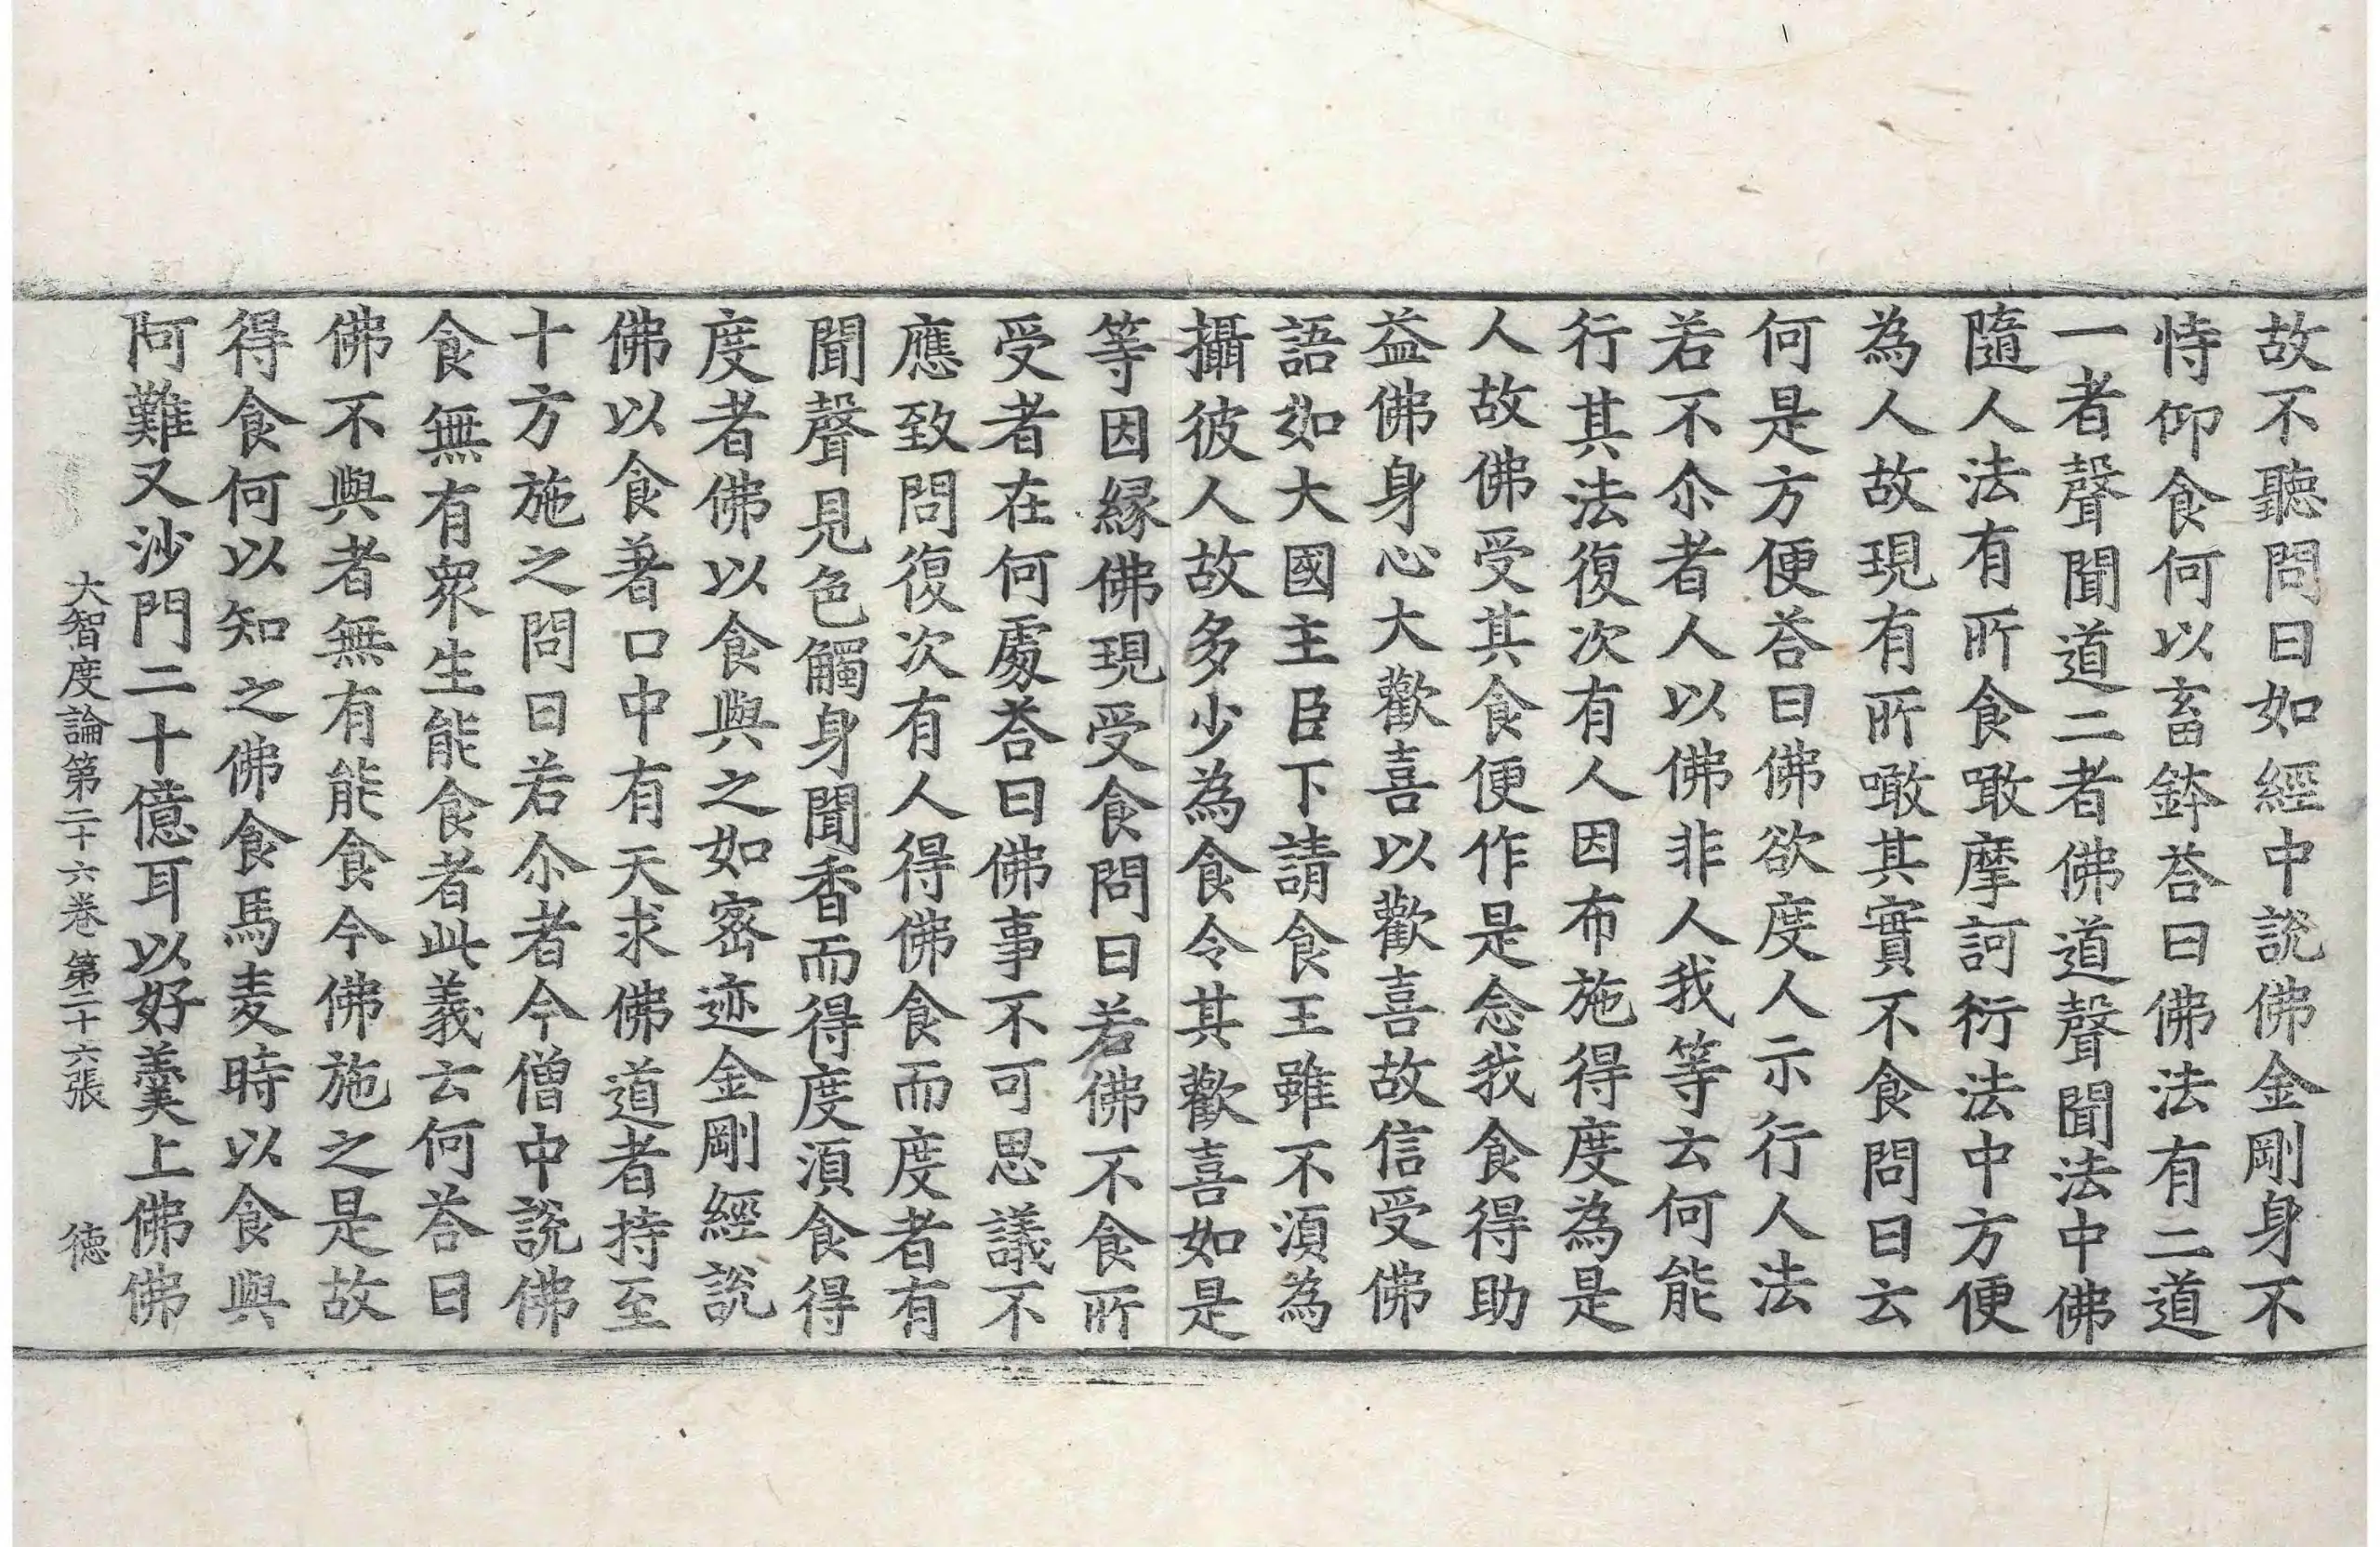 故不聽問曰如經中說佛金剛身不
恃仰食何以畜鉢荅曰佛法有二道
一者聲聞道二者佛道聲聞法中佛
隨人法有所食噉摩訶衍法中方便
為人故現有所噉其實不食問曰云
何是方便荅曰佛欲度人示行人法
若不尒者人以佛非人我等云何能
行其法復次有人因布施得度為是
人故佛受其食便作是念我食得助
益佛身心大歡喜以歡喜故信受佛
語如大國主臣下請食王雖不湏為
攝彼人故多少為食令其歡喜如是
等因緣佛現受食問曰若佛不食所
受者在何處荅曰佛事不可思議不
應致問復次有人得佛食而度者有
聞聲見色觸身聞香而得度湏食得
度者佛以食與之如密迹金剛經說
佛以食著口中有天求佛道者持至
十方施之問曰若尒者今僧中說佛
食無有衆生能食者此義云何荅曰
佛不與者無有能食今佛施之是故
得食何以知之佛食馬麦時以食與
阿難又沙門二十億耳以好羹上佛佛
大智度論第二十六卷 第二十六張 德